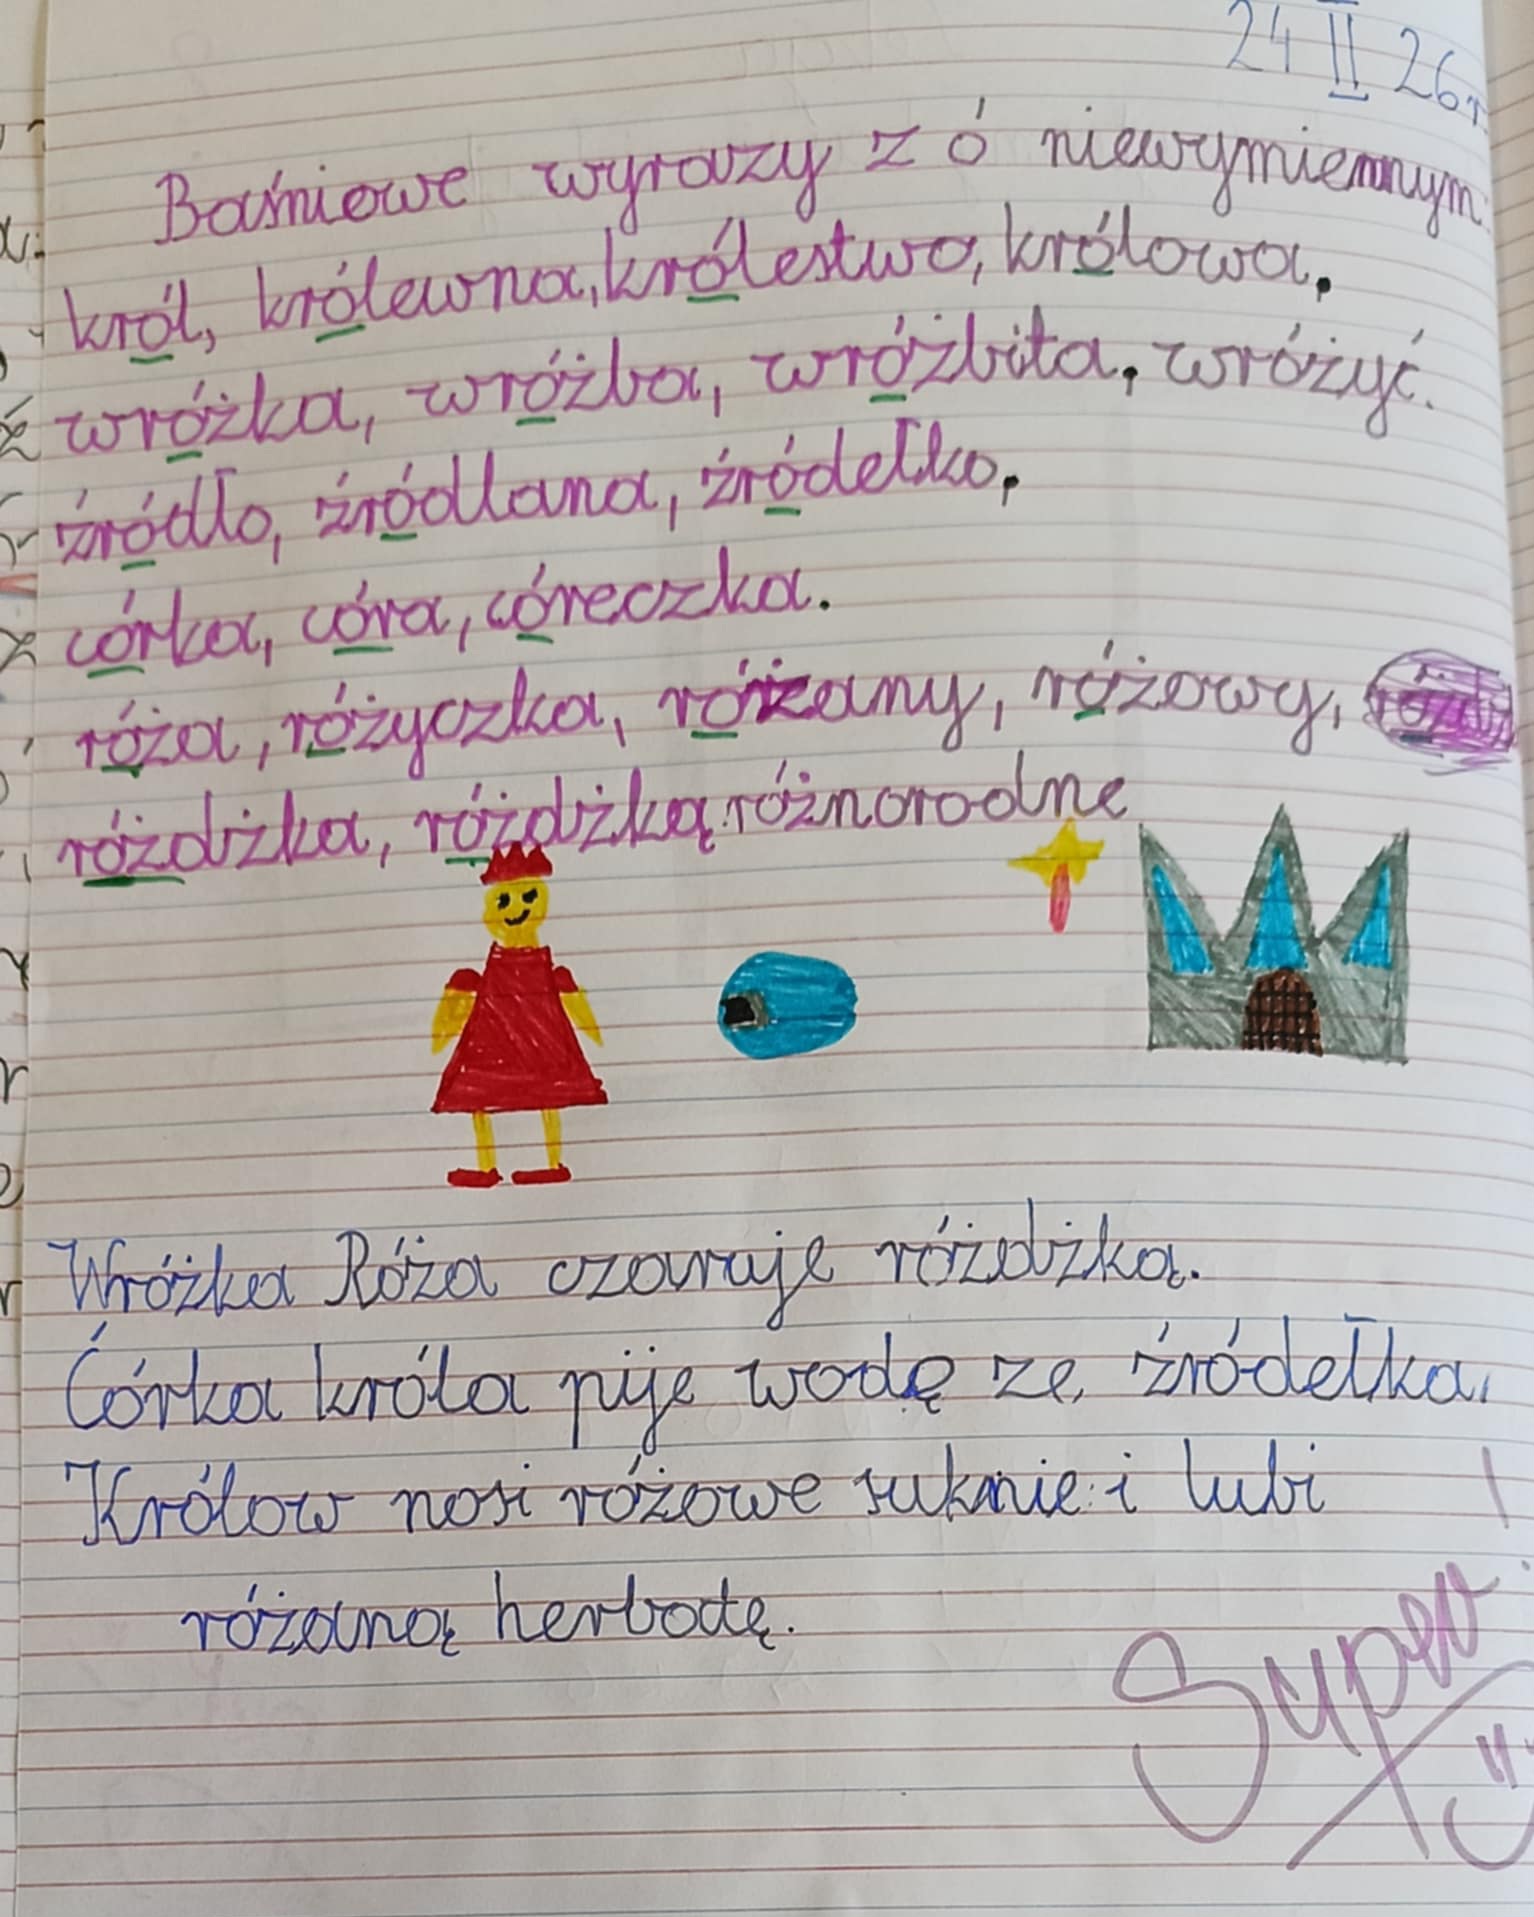 24 II 26r.
Baśniowe wyrazy z ó niewymiennym
król, królewna, królestwo, królowa.
wróżka, wróżba, wróżbita, wróżyć.
źródło, źródlana, źródełko.
córka, córa, córeczka.
róża, różyczka, różany, różowy,
różdżka, różdżką różnorodne
Wróżka Róża czaruje różdżką.
Córka króla pije wodę ze źródełka.
Królow nosi różowe suknie i lubi
różaną herbatę.
Super!